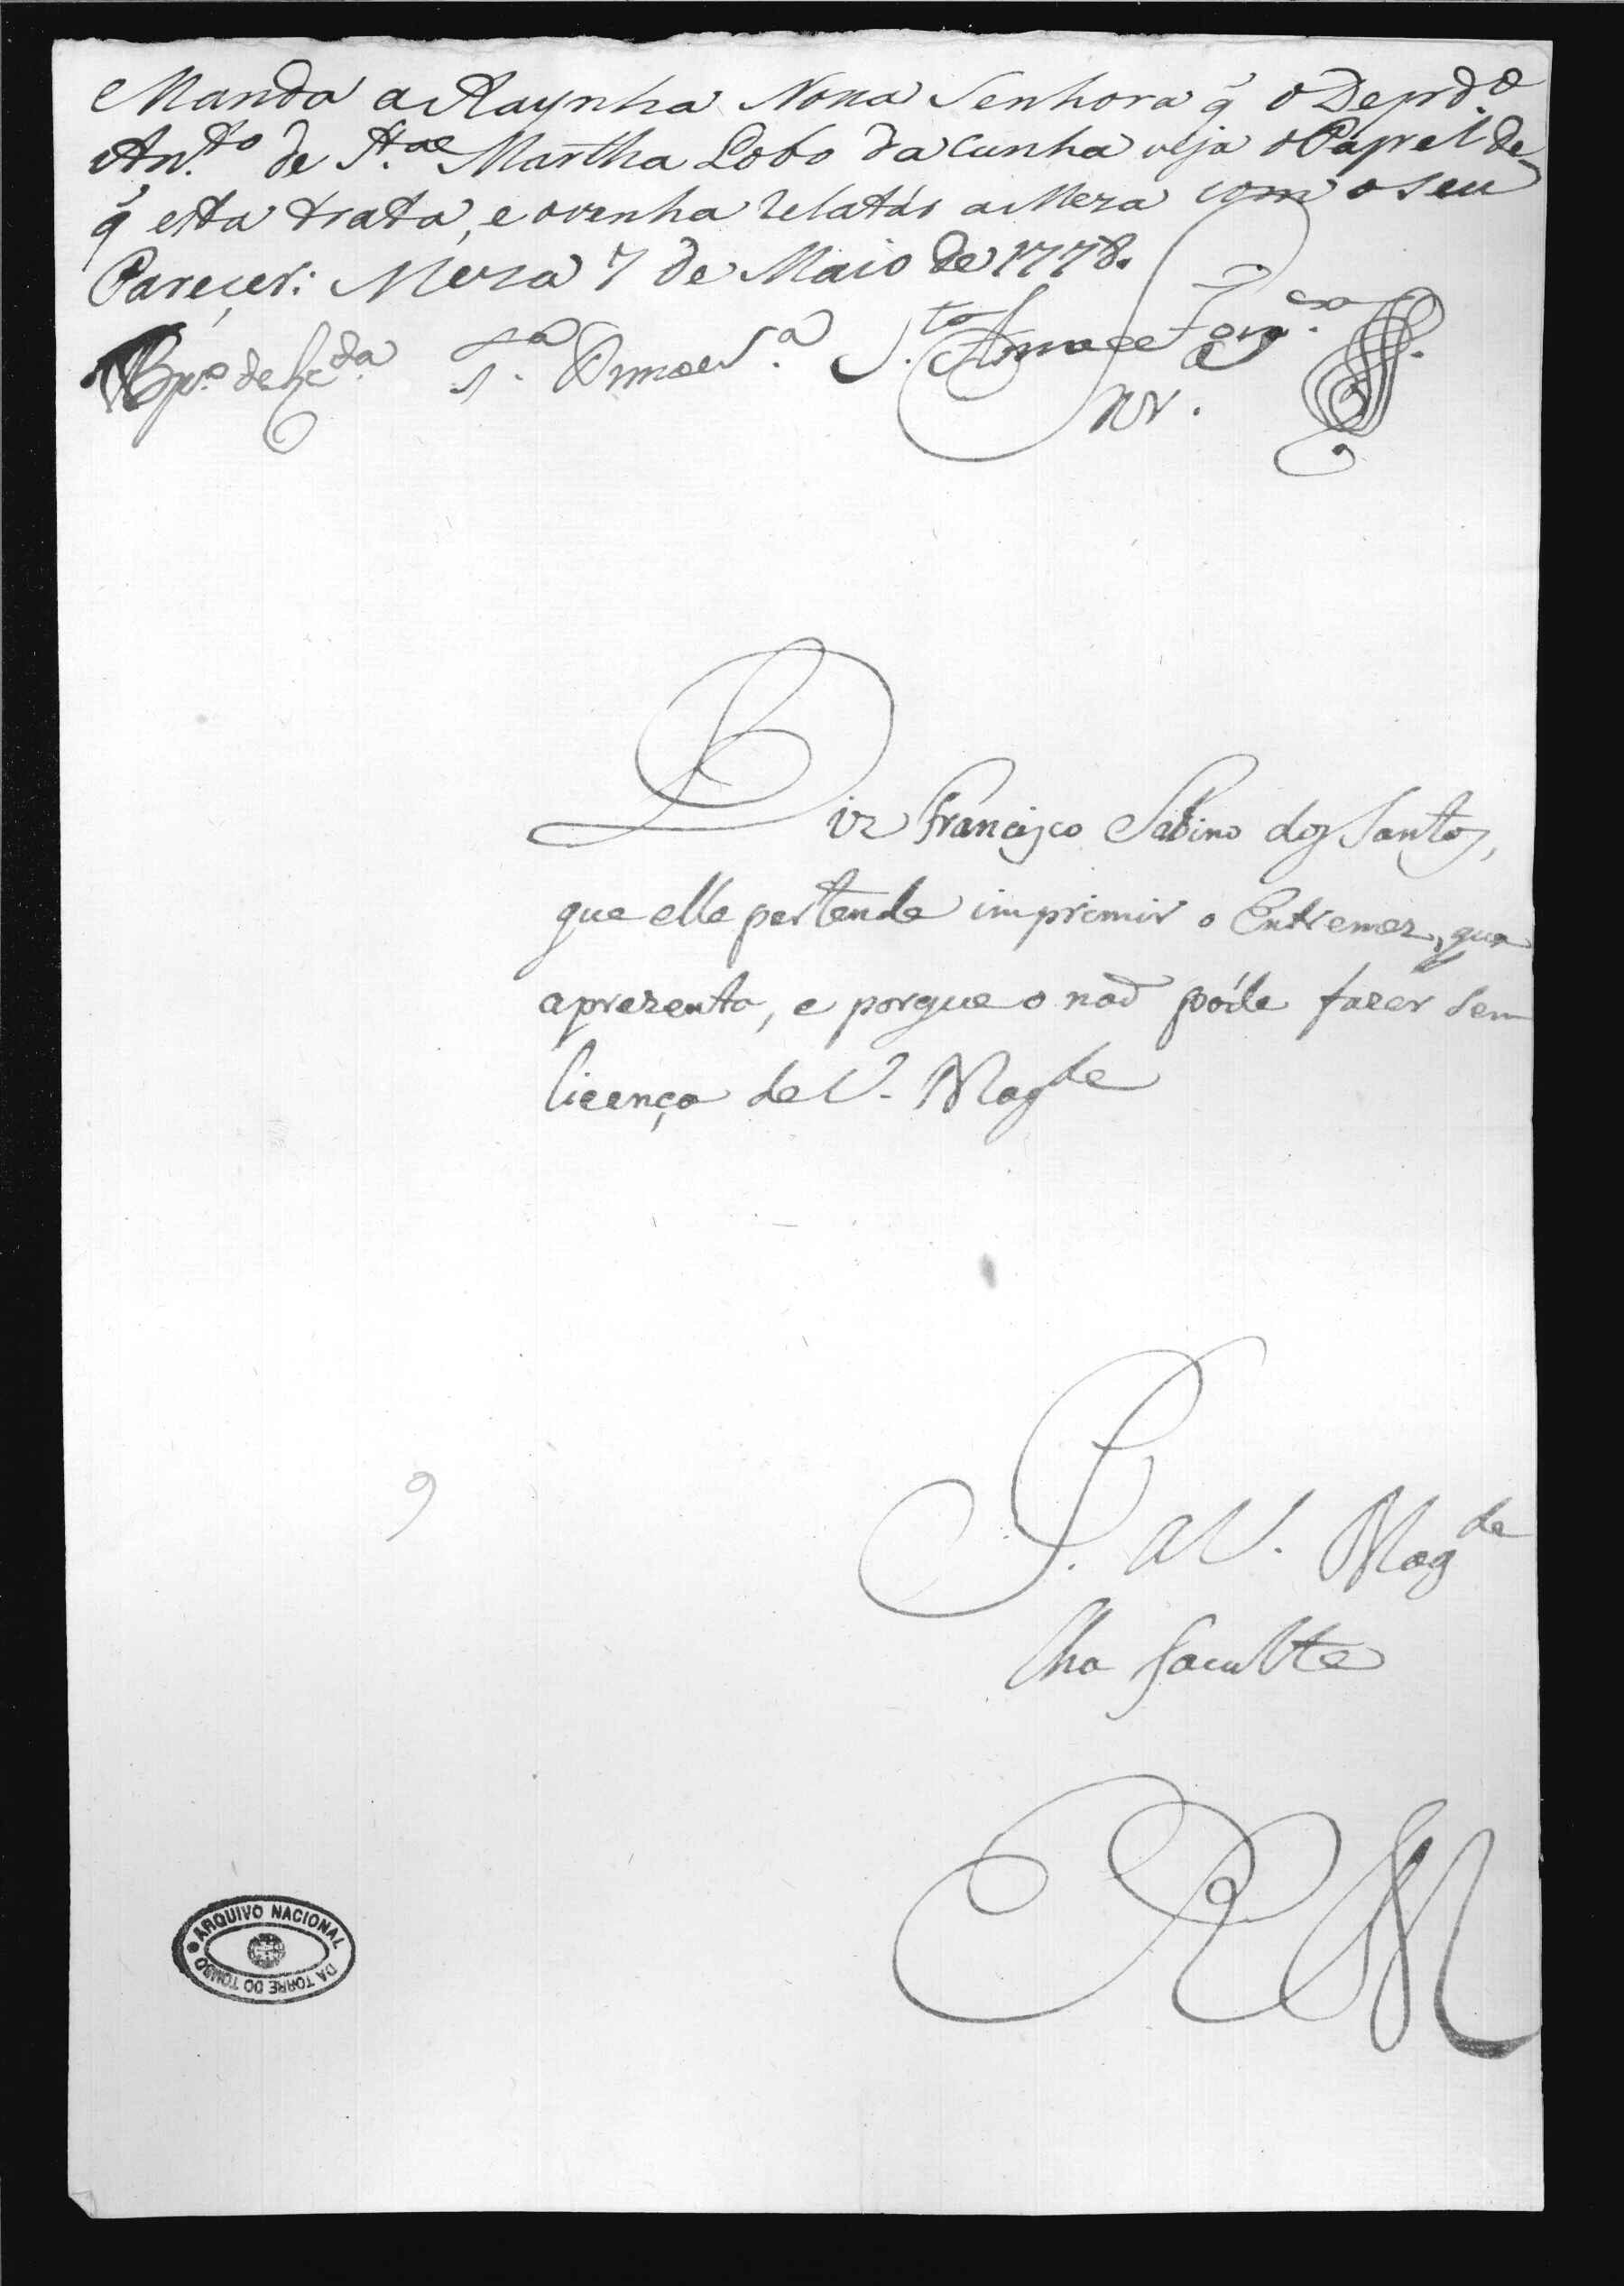 Manda a Raynha Nossa Senhora q̃ o Deptd.º
An.to de St.ae Martha Lobo da Cunha veja o Papel de
q̃ esta trata, e o venha relatár a Meza com o seu
Pareçer: Meza 7 de Maio de 1778.
Bp.o de
S.to
Diz Francisco Sabino dos Santos,
que elle pertende imprimir o Entremez, que
aprezenta, e porque o naõ póde fazer sem
licença de V. Mag.de
P. a V. Mag.de
lha faculte
ERM
9
ARQUIVO NACIONAL DA TORRE DO TOMBO